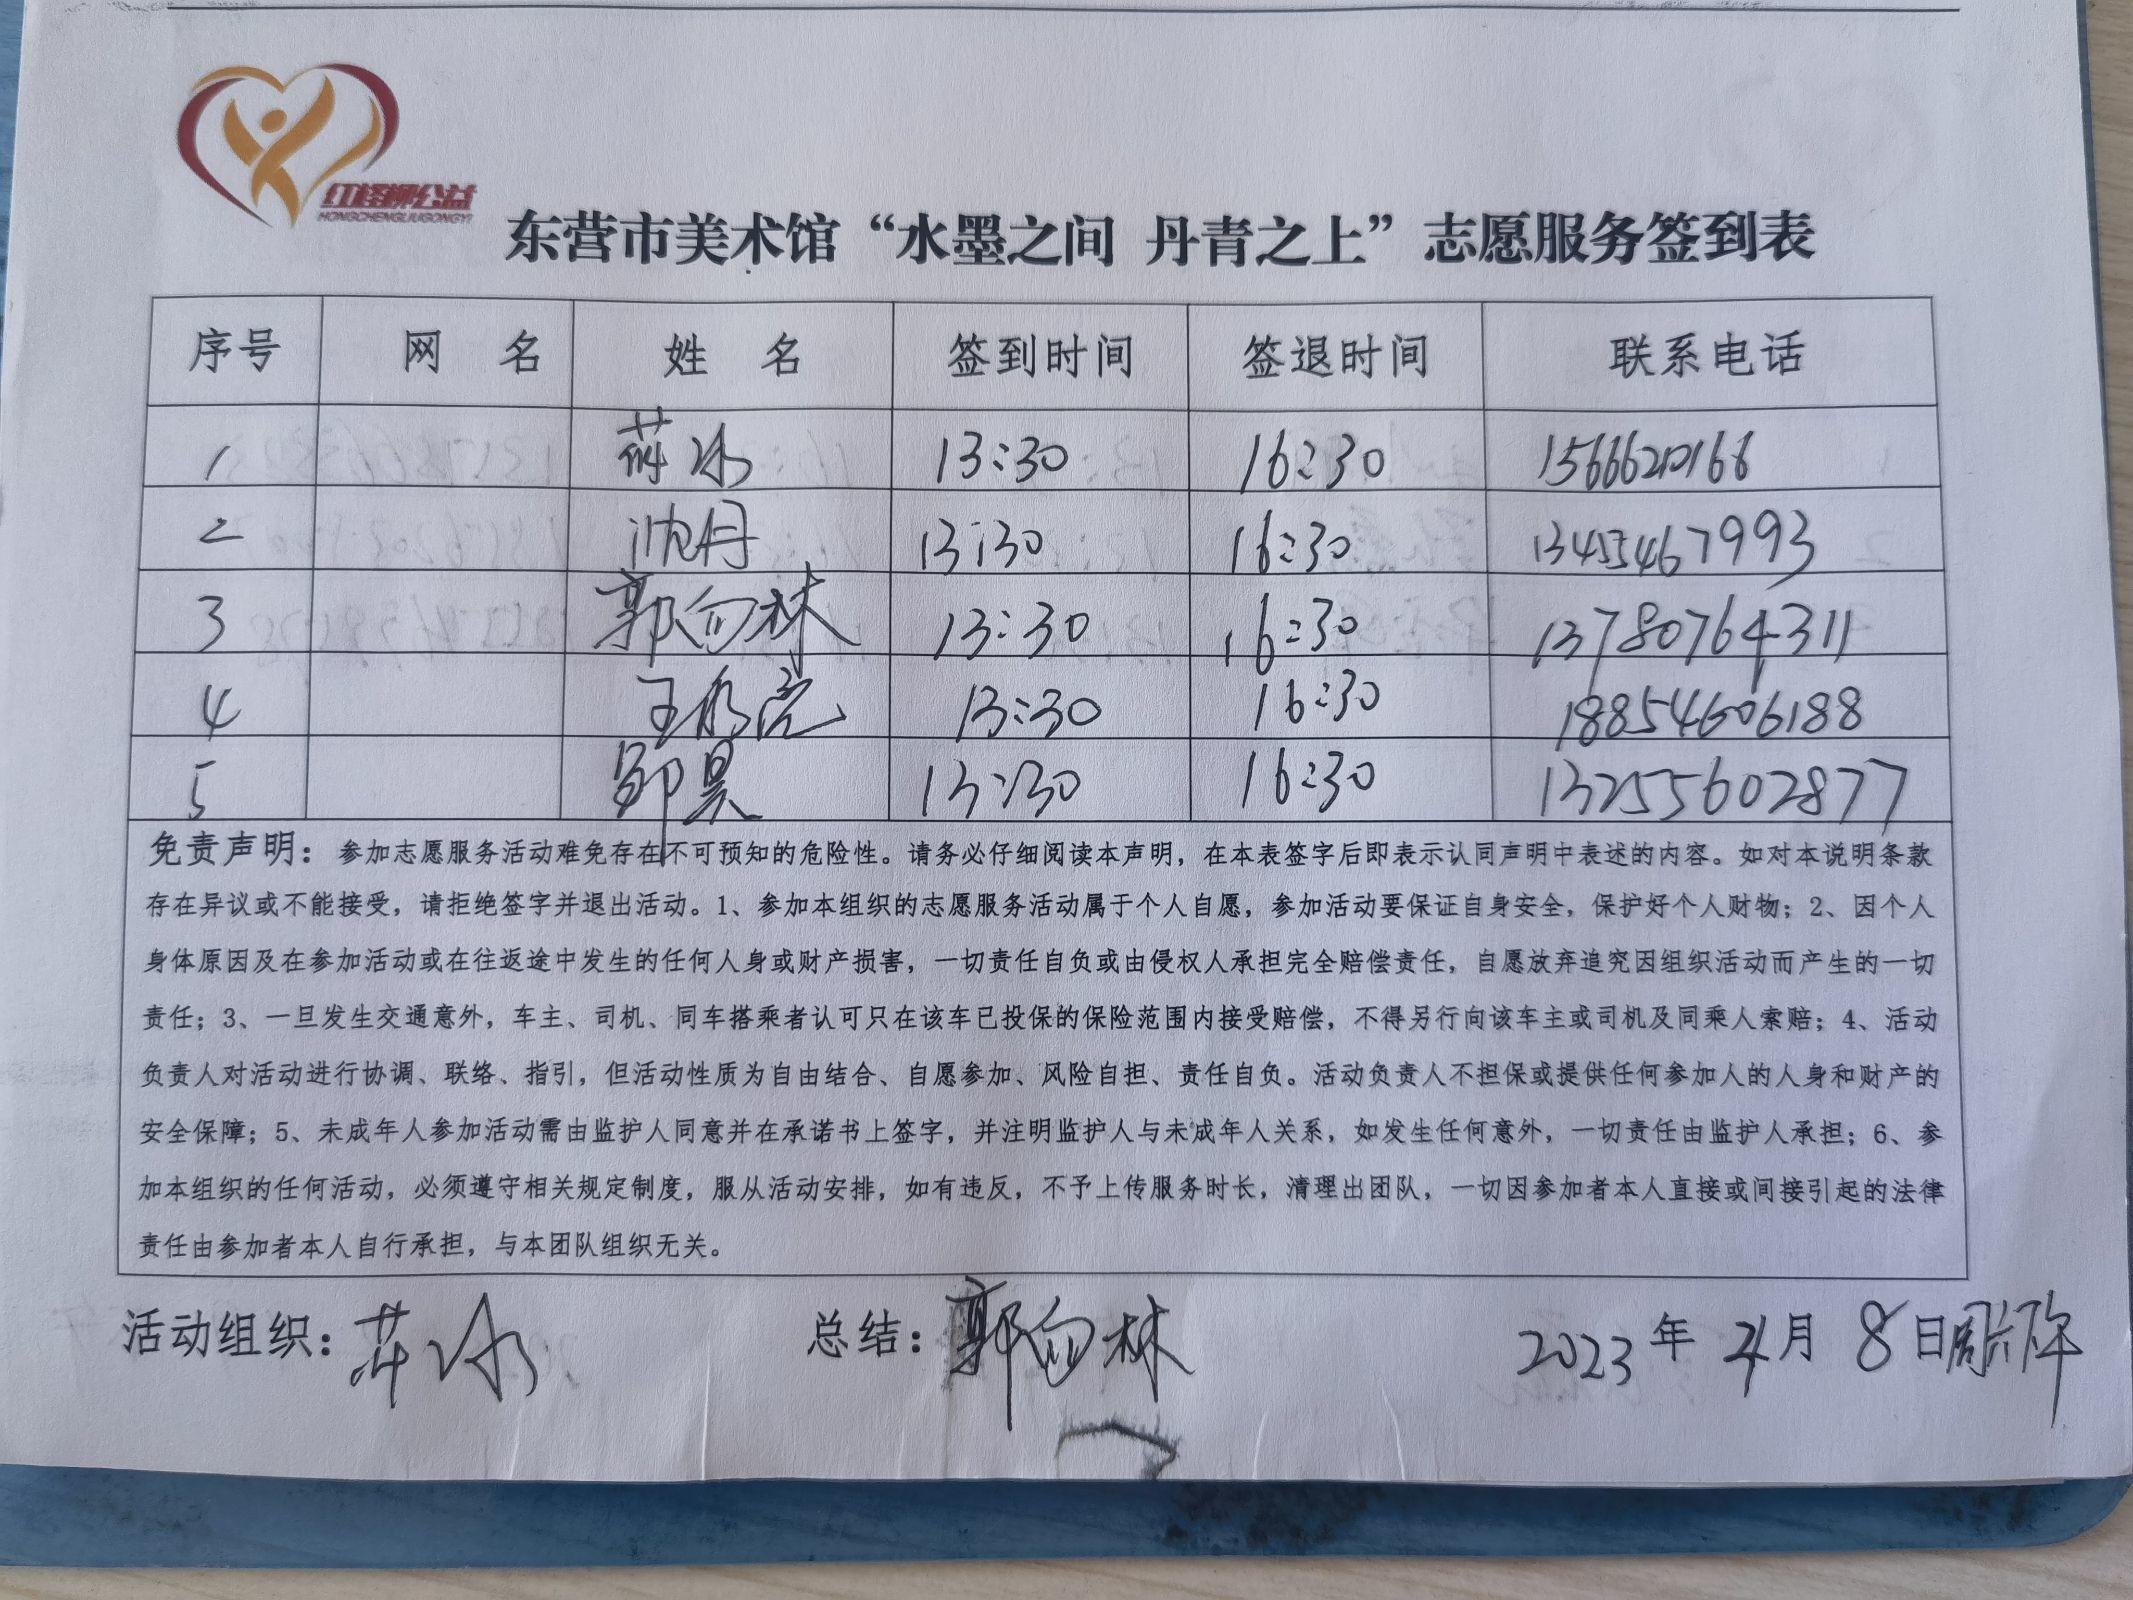 红柽柳公益
HONGCHENGLIUGONGYI
东营市美术馆“水墨之间 丹青之上”志愿服务签到表
序号 网 名 姓 名 签到时间 签退时间 联系电话
1 冰 13:30 16:30 15666210168
2 沈丹 13:30 16:30 13455467993
3 郭向林 13:30 16:30 13780764311
4 王 亮 13:30 16:30 18854606188
5 邹昊 13:30 16:30 13255602877
免责声明：参加志愿服务活动难免存在不可预知的危险性。请务必仔细阅读本声明，在本表签字后即表示认同声明中表述的内容。如对本说明条款
存在异议或不能接受，请拒绝签字并退出活动。1、参加本组织的志愿服务活动属于个人自愿，参加活动要保证自身安全，保护好个人财物；2、因个人
身体原因及在参加活动或在往返途中发生的任何人身或财产损害，一切责任自负或由侵权人承担完全赔偿责任，自愿放弃追究因组织活动而产生的一切
责任；3、一旦发生交通意外，车主、司机、同车搭乘者认可只在该车已投保的保险范围内接受赔偿，不得另行向该车主或司机及同乘人索赔；4、活动
负责人对活动进行协调、联络、指引，但活动性质为自由结合、自愿参加、风险自担、责任自负。活动负责人不担保或提供任何参加人的人身和财产的
安全保障；5、未成年人参加活动需由监护人同意并在承诺书上签字，并注明监护人与未成年人关系，如发生任何意外，一切责任由监护人承担；6、参
加本组织的任何活动，必须遵守相关规定制度，服从活动安排，如有违反，不予上传服务时长，清理出团队，一切因参加者本人直接或间接引起的法律
责任由参加者本人自行承担，与本团队组织无关。
活动组织： 冰 总结：郭向林 2023年4月8日周六下午